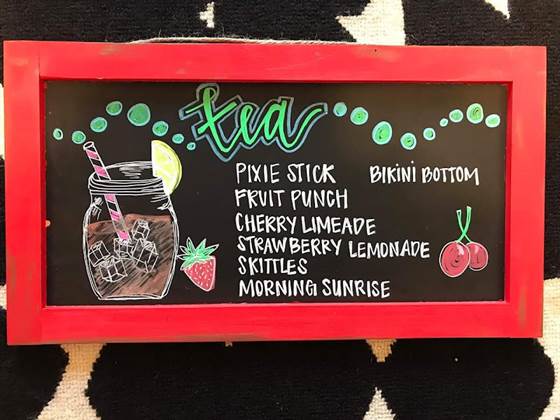 tea
PIXIE STICK
FRUIT PUNCH
CHERRY LIMEADE
STRAWBERRY LEMONADE
SKITTLES
MORNING SUNRISE
BIKINI BOTTOM